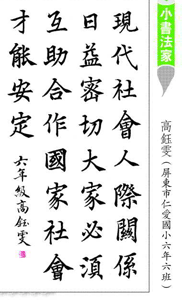 小書法家
高鈺雯（屏東市仁愛國小六年六班）
現代社會人際關係
日益密切大家必須
互助合作國家社會
才能安定
六年級高鈺雯